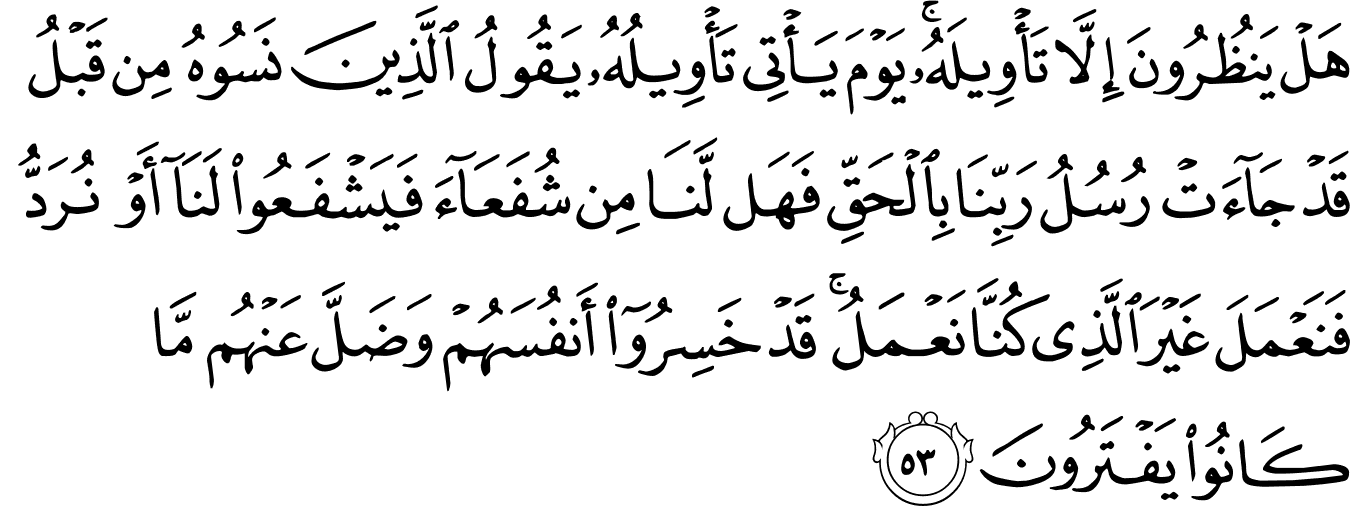 هَلۡ يَنظُرُونَ إِلَّا تَأۡوِيلَهُۥۚ يَوۡمَ يَأۡتِى تَأۡوِيلُهُۥ يَقُولُ ٱلَّذِينَ نَسُوهُ مِن قَبۡلُ
قَدۡ جَآءَتۡ رُسُلُ رَبِّنَا بِٱلۡحَقِّ فَهَل لَّنَا مِن شُفَعَآءَ فَيَشۡفَعُوا۟ لَنَآ أَوۡ نُرَدُّ
فَنَعۡمَلَ غَيۡرَ ٱلَّذِى كُنَّا نَعۡمَلُۚ قَدۡ خَسِرُوٓا۟ أَنفُسَهُمۡ وَضَلَّ عَنۡهُم مَّا
كَانُوا۟ يَفۡتَرُونَ ٥٣